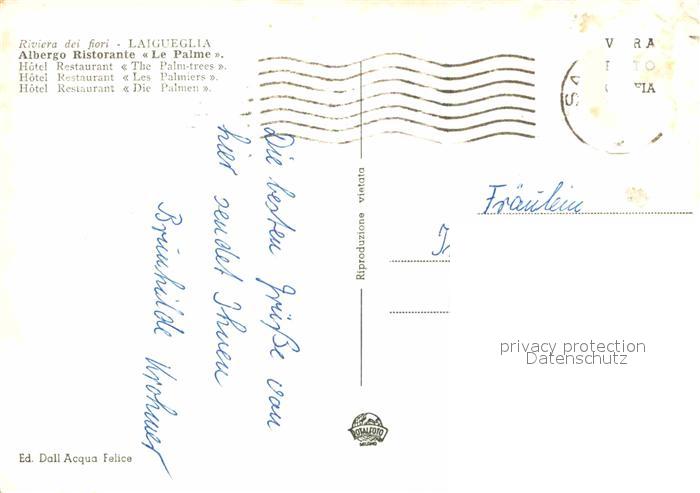 Riviera dei fiori - LAIGUEGLIA
Albergo Ristorante « Le Palme ».
Hôtel Restaurant « The Palm-trees ».
Hôtel Restaurant « Les Palmiers ».
Hôtel Restaurant « Die Palmen ».
Die besten Grüße von
hier sendet Ihnen
Brünhilde Krohmer
Riproduzione vietata
Fräulein
privacy protection
Datenschutz
ROTALFOTO
MILANO
Ed. Dall Acqua Felice